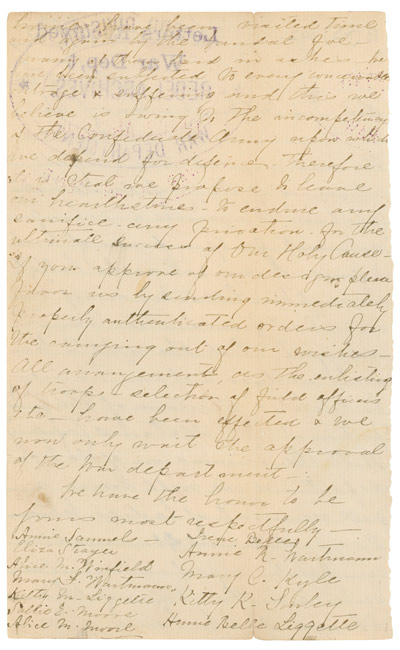 have been visited time
and again by the vandal foe
in ashes we
have been subjected to every conceivable
outrage & suffering and this we
believe is owing to the incompetency
of the Confederate Army upon which
we depend for defense. Therefore
is it that we propose to leave
our hearthstones - to endure any
sacrifice - any privation for the
ultimate success of Our Holy Cause -
If you approve of our design please
favor us by sending immediately
properly authenticated orders for
the carrying out of our wishes -
All arrangements, as the enlisting
of troops - selection of field officers
etc - have been effected & we
now only wait the approval
of the War department -
We have the honor to be
yours most respectfully -
Annie Samuels - Irene Bell
Eliza Strayer Annie R. Wartmann
Alice M. Winfield Mary C. Kyle
Mary F. Wartmann
Ketty M. Liggette Kitty K.
Sallie E. Moore
Alice M. Moore Hennie Belle Liggette